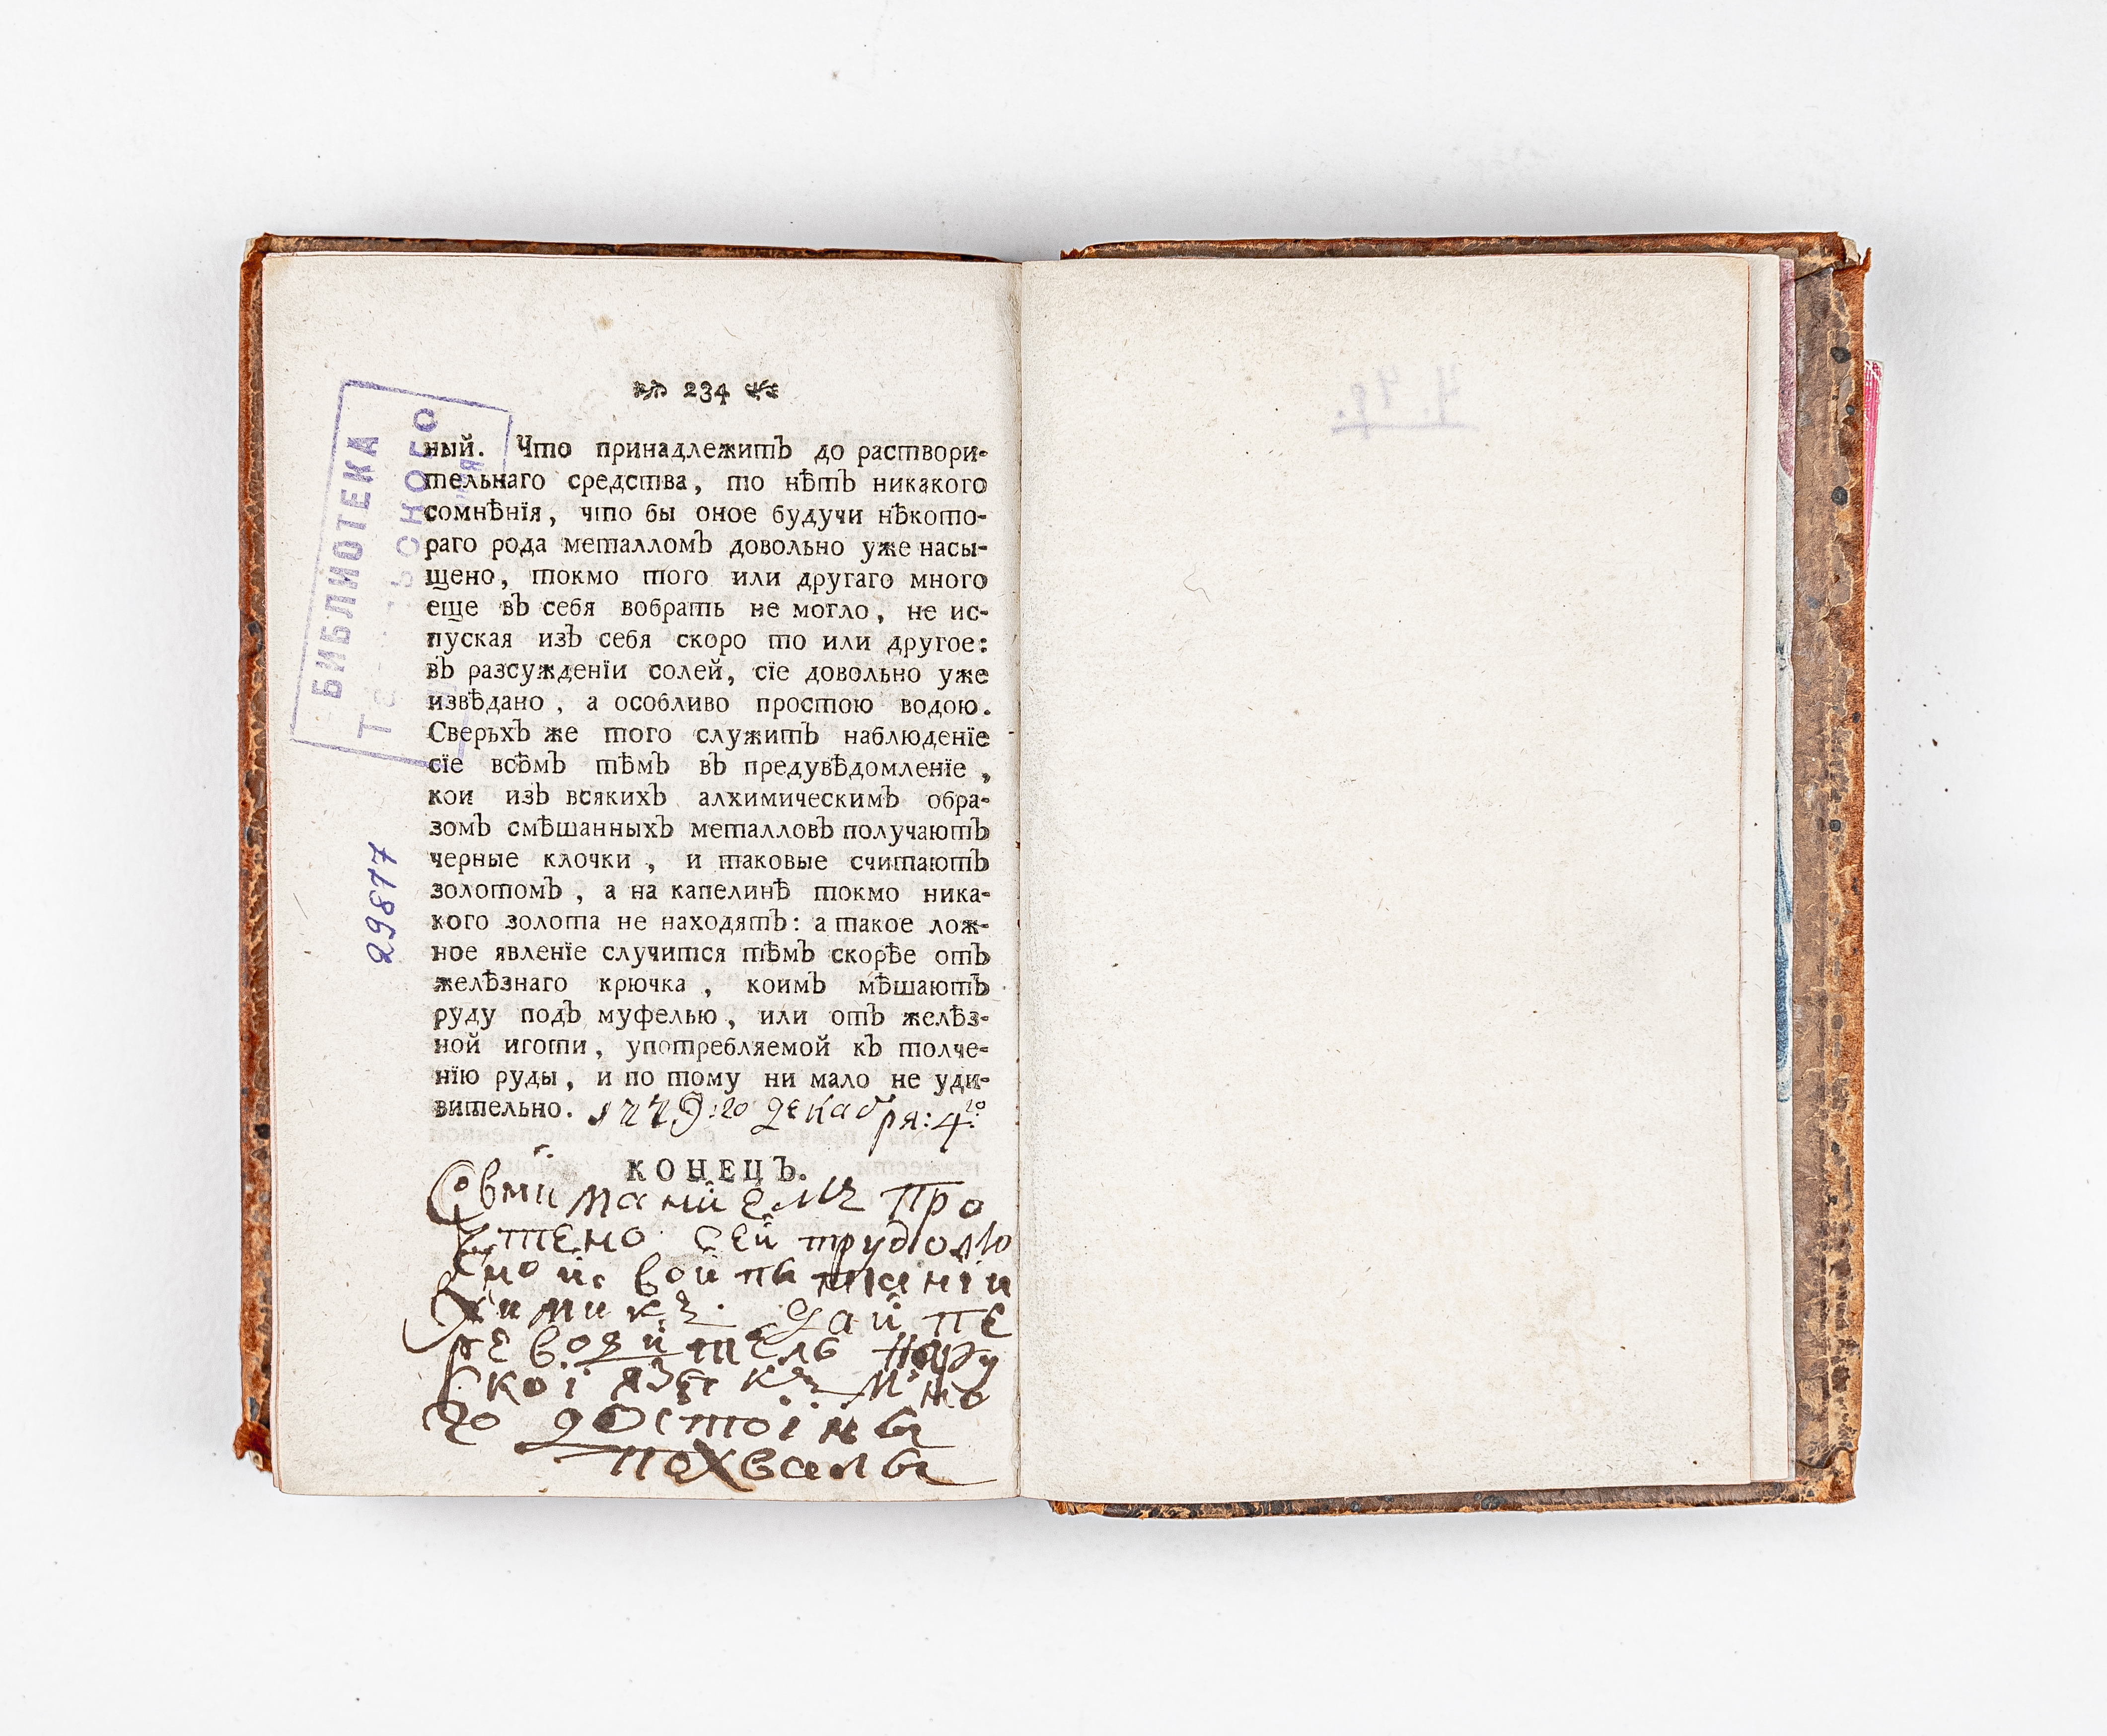 234
ный. Что принадлежитъ до раствори-
тельнаго средства, то нѣтъ никакого
сомнѣнїя, что бы оное будучи нѣкото-
раго рода металломъ довольно уже насы-
щено, токмо того или другаго много
еще въ себя вобрать не могло, не ис-
пуская изъ себя скоро то или другое:
въ разсужденїи солей, сїе довольно уже
извѣдано, а особливо простою водою.
Сверьхъ же того служитъ наблюденїе
сїе всѣмъ тѣмъ въ предувѣдомленїе,
кои изъ всякихъ алхимическимъ обра-
зомъ смѣшанныхъ металловъ получаютъ
черные клочки, и таковые считаютъ
золотомъ, а на капелинѣ токмо ника-
кого золота не находятъ: а такое лож-
ное явленїе случится тѣмъ скорѣе отъ
желѣзнаго крючка, коимъ мѣшаютъ
руду подъ муфелью, или отъ желѣз-
ной иготи, употребляемой къ толче-
нїю руды, и по тому ни мало не уди-
вительно. 1779:го декабря: 4го
КОНЕЦЪ.
Совниманиемъ про
чтено сей трудолю
вой пытанїи
химикъ. Дай пе
ревозитель нару
скоі языкъ мно
го достоінъ
похвалы
БИБЛИОТЕКА
29877